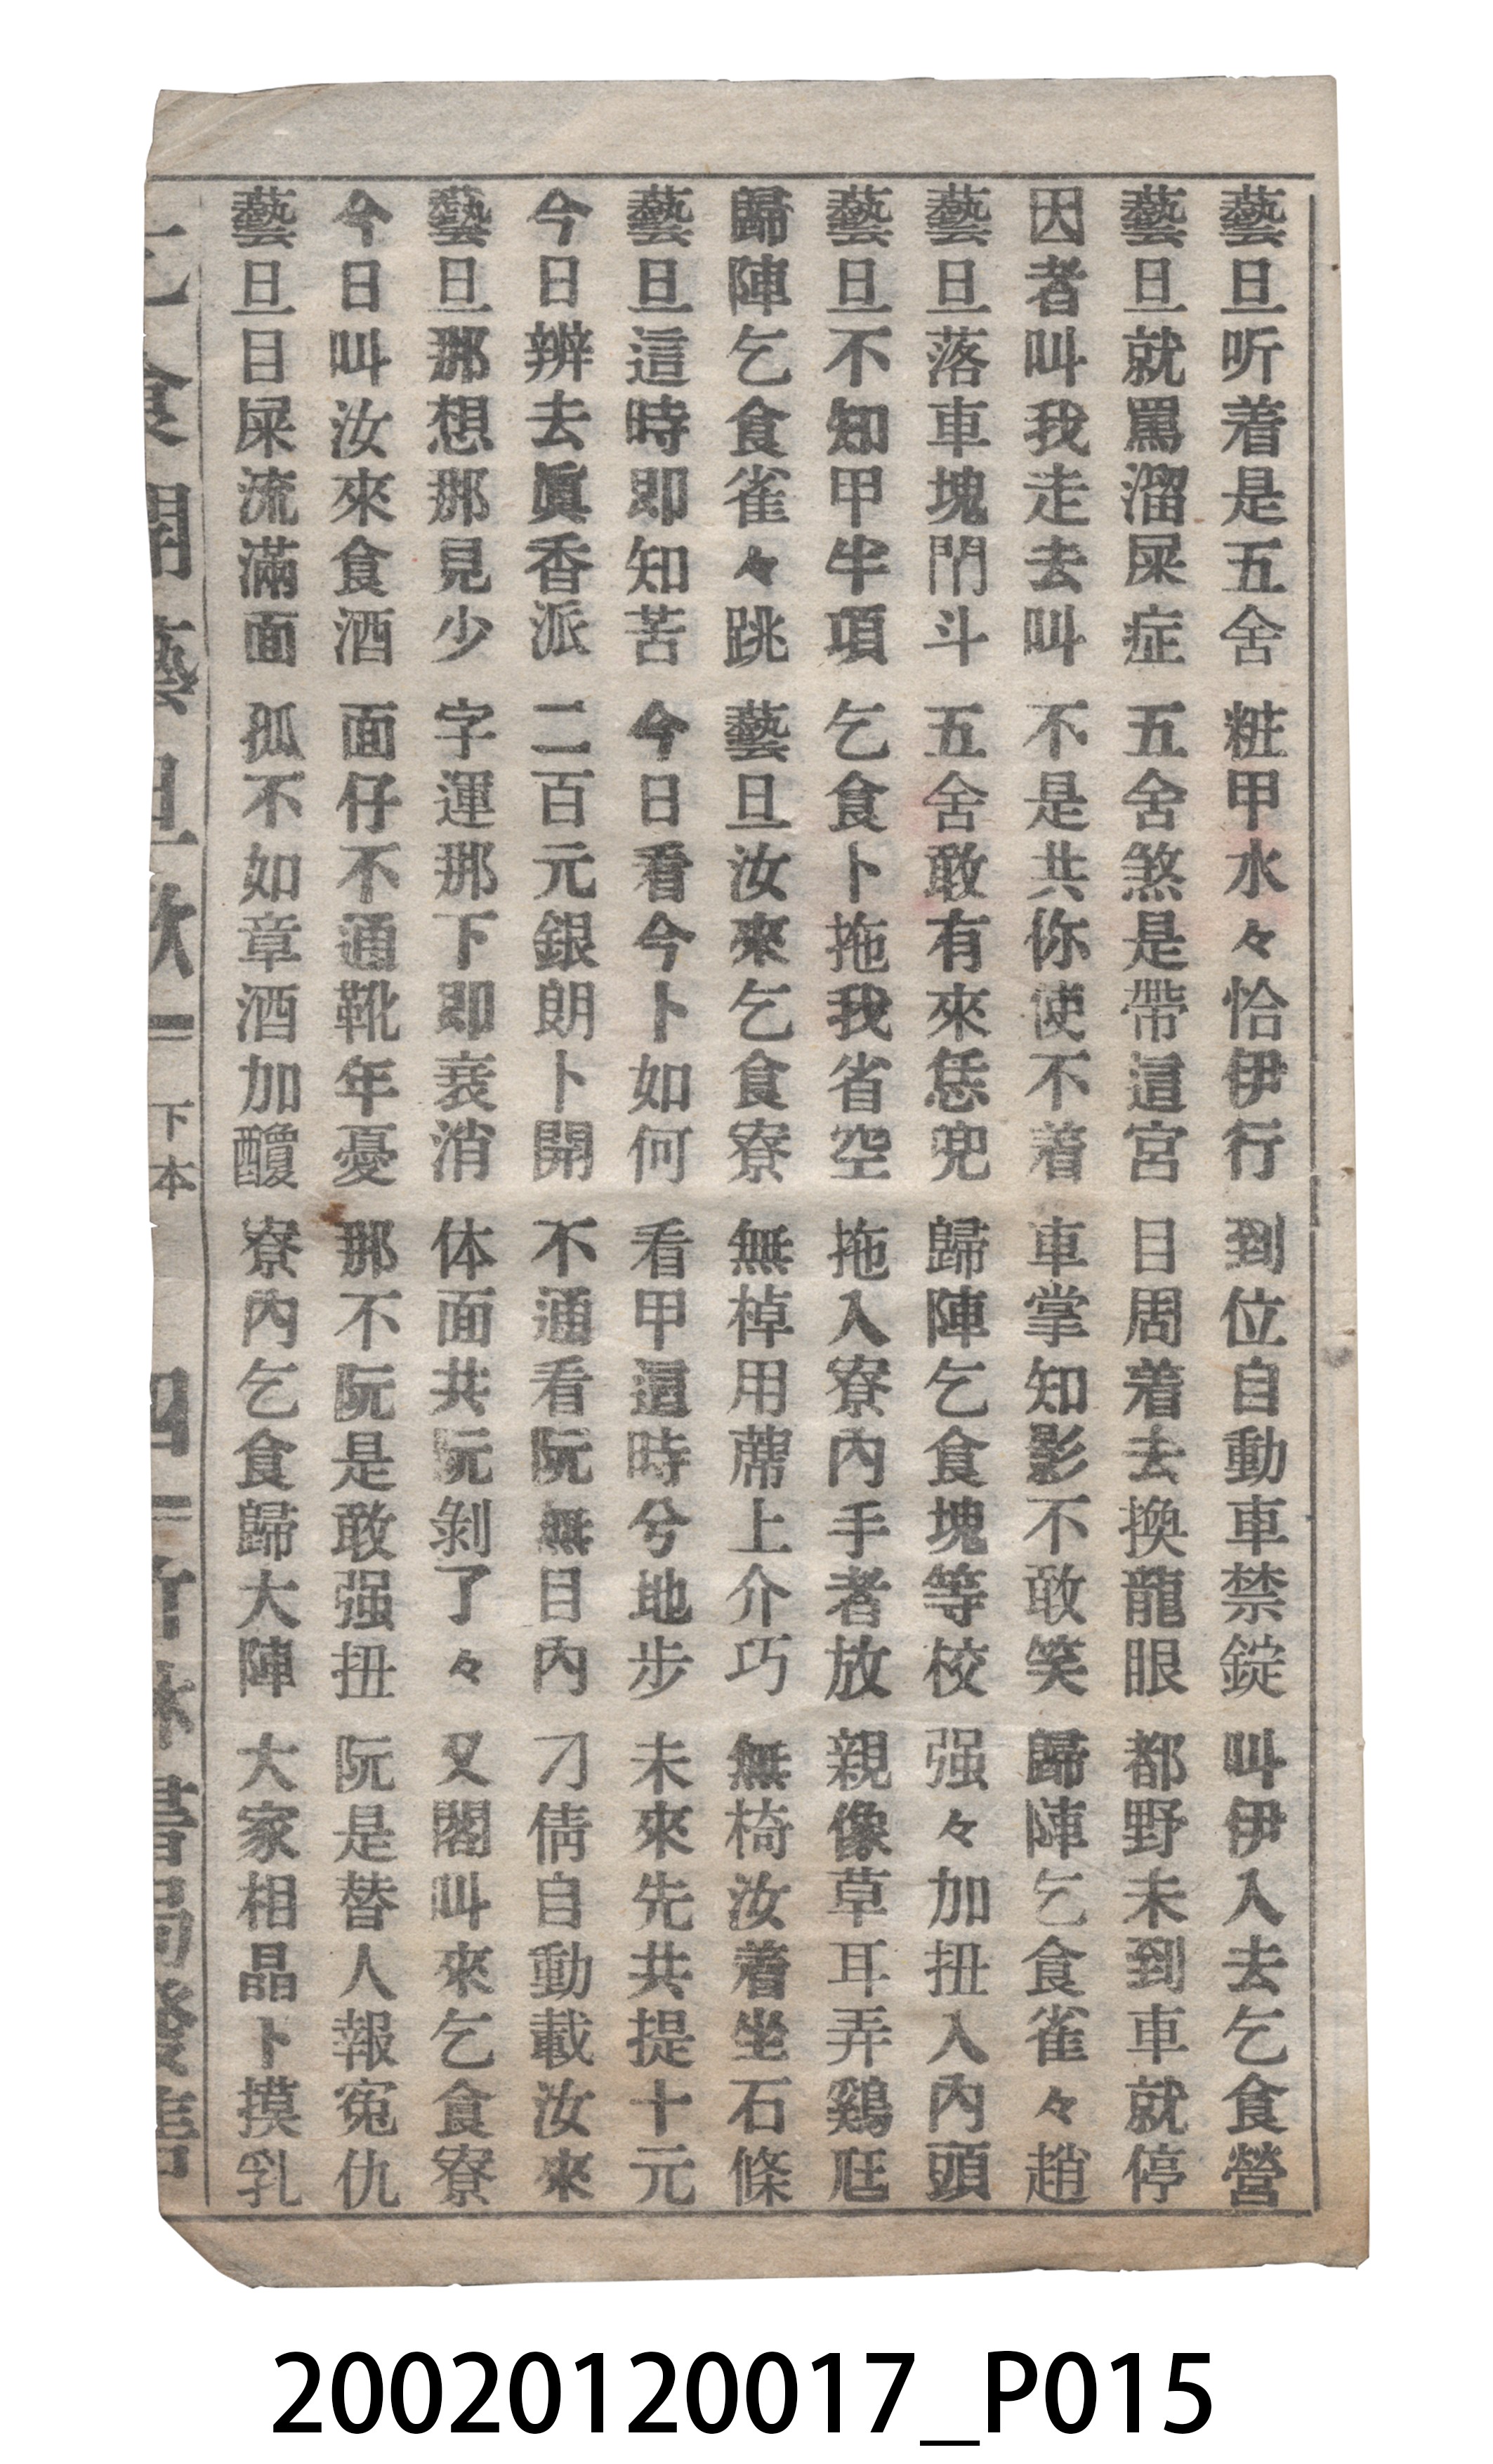 藝旦听着是五舍 粧甲水々恰伊行 到位自動車禁錠 叫伊入去乞食營
藝旦就罵溜屎症 五舍煞是帶這宮 目周着去換龍眼 都野未到車就停
因者叫我走去叫 不是共你使不着 車掌知影不敢笑 歸陣乞食雀々趙
藝旦落車塊閗斗 五舍敢有來恁兜 歸陣乞食塊等校 强々加扭入內頭
藝旦不知甲牛項 乞食卜拖我省空 拖入寮內手者放 親像草耳弄鷄尫
歸陣乞食雀々跳 藝旦汝來乞食寮 無棹用蓆上介巧 無椅汝着坐石條
藝旦這時即知苦 今日看今卜如何 看甲這時兮地步 未來先共提十元
今日辨去眞香派 二百元銀朗卜開 不通看阮無目內 刁倩自動載汝來
藝旦那想那見少 字運那下即衰消 体面共阮剝了々 又閣叫來乞食寮
今日叫汝來食酒 面仔不通靴年憂 那不阮是敢强扭 阮是替人報寃仇
藝旦目屎流滿面 孤不如章酒加醿 寮內乞食歸大陣 大家相晶卜摸乳
乞食開藝旦歌 下本 四 竹林書局發售
20020120017_P015